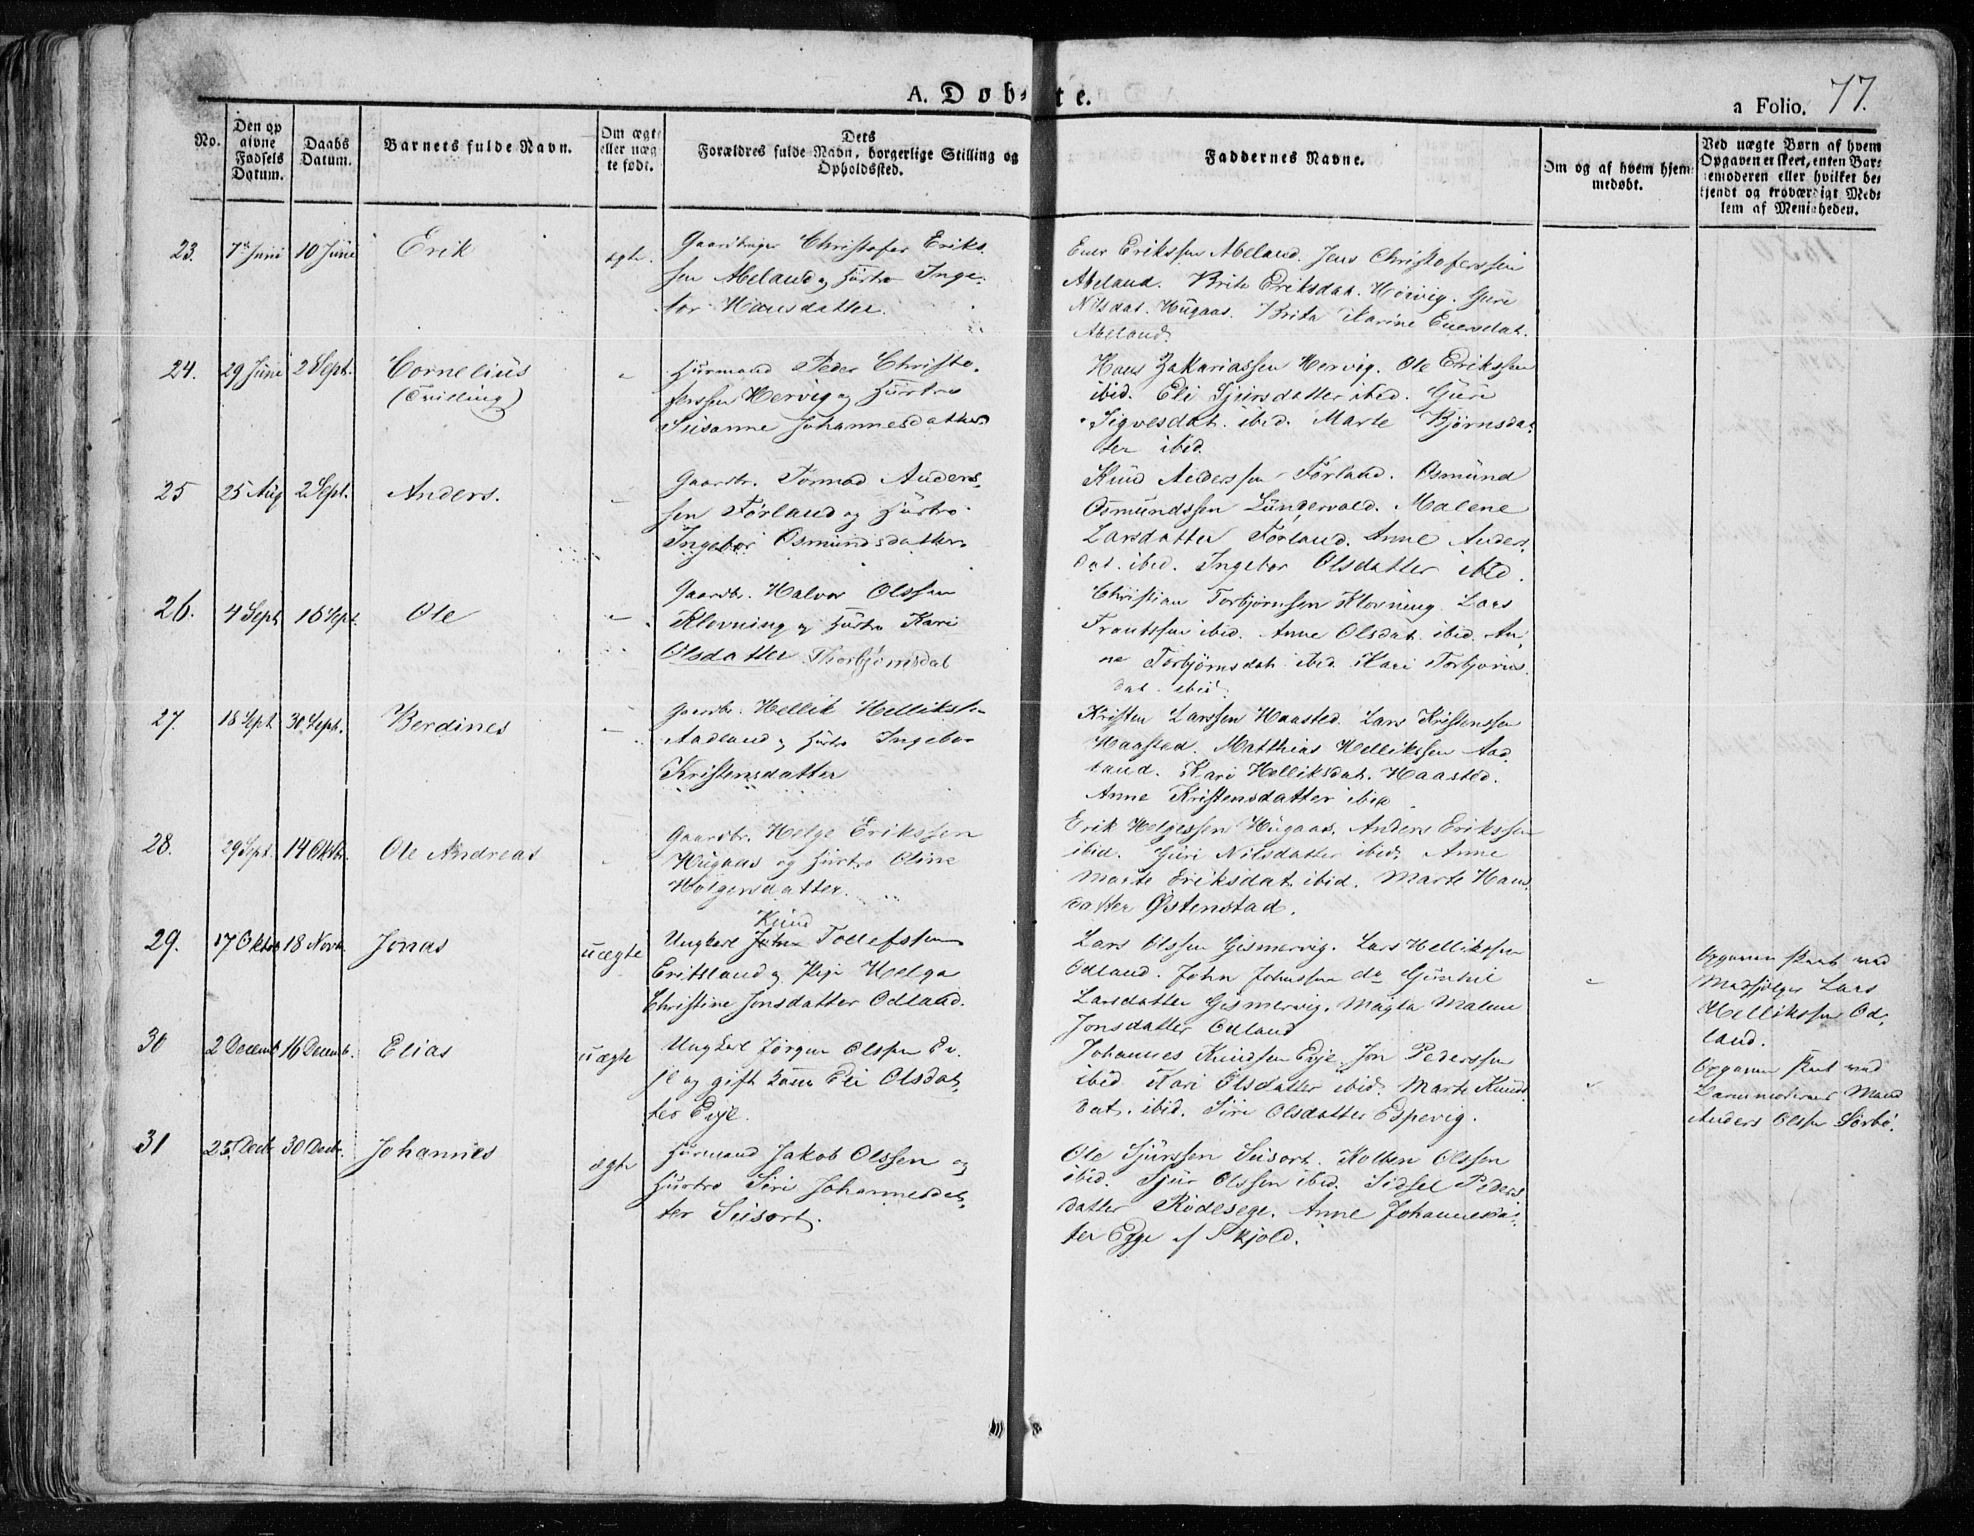 A. Døbte.
a Folio. 77.
No.
Den op
givne
Fødsels
Datum.
Daabs
Datum.
Barnets fulde Navn.
Om ægte
eller uæg
te født.
Dets
Forældres fulde Navn, borgerlige Stilling og
Opholdssted.
Faddernes Navne.
Om og af hvem hjem
medøbt.
Ved uægte Børn af hvem
Opgaven er skeet, enten Bar-
nemoderen eller hvilket be-
kjendt og troværdigt Med-
lem af Menigheden.
23. 7de Juni 10 Juni Erik ægte.
Gaardbruger Christofer Eriks
sen Abeland og Hustro Inge-
bor Hansdatter.
Ener Erikssen Abeland. Jens Christoferssen
Abeland. Brite Eriksdat. Hervig. Guri
Nilsdat. Hugaas. Brita Karine Enersdat.
Abeland.
24. 29 Juni 2 Sept. Cornelius
(Tvilling)
Huusmand Peder Christo-
ferssen Hervig og Hustro
Susanne Johannesdatter
Hans Zakariassen Hervig. Ole Erikssen
ibid. Eli Sjursdatter ibid. Guri
Sigvesdat. ibid. Marte Bjørnsdat
ter ibid.
25 25 Aug 2 Sept. Anders.
Gaardbr. Tormod Anders-
sen Førland og Hustro
Ingebor Osmundsdatter
Knud Anderssen Førland. Osmund
Osmundssen Lundervold. Malene
Larsdatter Førland. Anne Anders
dat. ibid. Ingebor Olsdatter ibid.
26. 4 Sept 16 Sept. Ole
Gaardbr. Halvor Olssen
Klovning og Hustro Kari
Olsdatter Thorbjørnsdat
Christian Torbjørnsen Klovning. Lars
Frantssen ibid. Anne Olsdat. ibid. An-
ne Torbjørnsdat. ibid. Kari Torbjørns
dat. ibid.
27. 18 Sept 30 Sept. Berdines
Gaardbr. Hellik Hellikssen
Aadland og Hustro Ingebor
Kristensdatter
Kristen Larssen Haasted. Lars Kristenssen
Haasted. Matthias Hellikssen Aad
land. Kari Helliksdat. Haasted.
Anne Kristensdatter ibid
28. 29 Sept. 14 Oktbr. Ole Andreas
Gaardbr. Helge Erikssen
Hugaas og Hustro Oline
Holgersdatter.
Erik Helgessen Hugaas. Anders Erikssen
ibid. Guri Nilsdatter ibid. Anne
Marte Eriksdat. ibid. Marte Hans
datter Østenstad.
29. 17 Oktbr 18 Novbr Jonas uægte
Knud
Ungkarl John Tollefssen
Eritsland og Pige Helga
Christine Jonsdatter Odland.
Lars Olssen Gismervig. Lars Hellikssen
Odland. John Johnssen do Gunhil
Larsdatter Gismervig. Magla Malene
Jonsdatter Odland
Opgaven skeet ved
Medhjælper Lars
Hellikssen Od-
land.
30 2 Decemb 16 Decemb. Elias uægte
Ungkarl Jørgen Olssen Ev-
je og gift Kone Eli Olsdat-
ter Evje.
Johannes Knudsen Evje, Jon Pederssen
ibid Kari Olsdatter ibid. Marte Knuds
dat. ibid. Siri Olsdatter Espevig.
Opgaven skeet ved
Barnemoderens Mand
Anders Olssen Sørbø.
31 25 Decbr 30 Decbr. Johannes ægte
Huusmand Jakob Olssen og
Hustro Siri Johannesdat-
ter Susort.
Ole Sjurssen Susort. Kolben Olssen
ibid. Sjur Olssen ibid. Sidsel Peders
datter Rødesege. Anne Johannesdat-
ter Egge af Skjold.